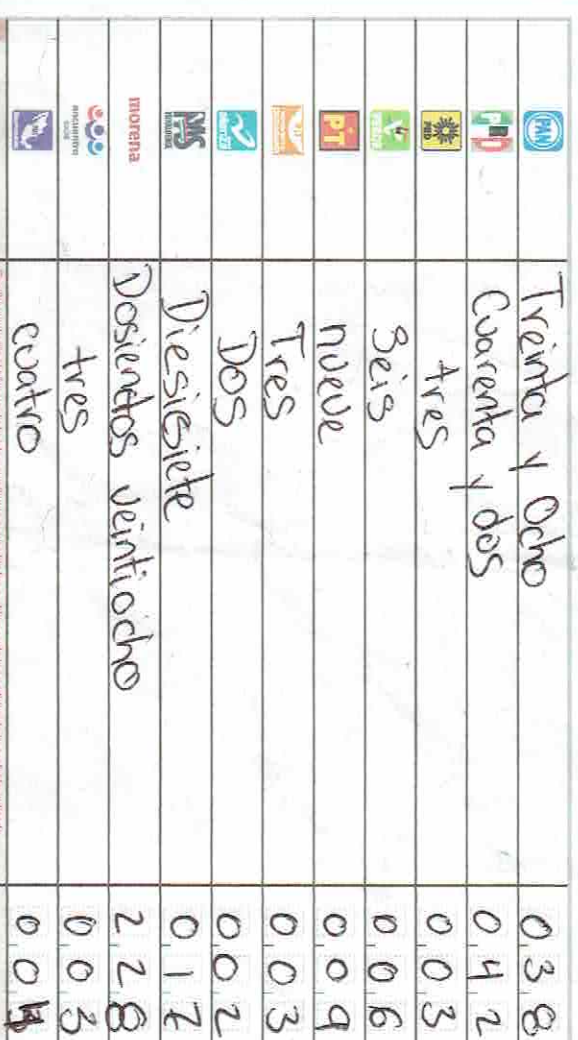 PAN Treinta y Ocho 038
PRI Cuarenta y dos 042
PRD tres 003
VERDE Seis 006
PT nueve 009
Tres 003
Dos 002
Diesisiete 017
morena Dosientos veintiocho 228
encuentro social tres 003
cuatro 004